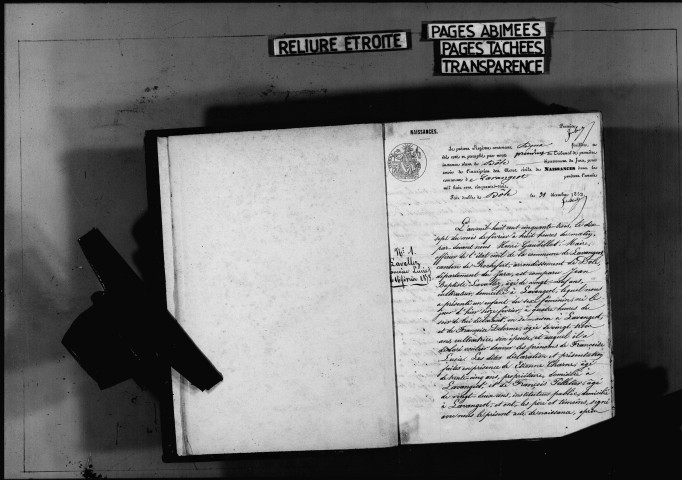 RELIURE ETROITE
PAGES ABIMEES
PAGES TACHEES
TRANSPARENCE
NAISSANCES.
Le présent Registre, contenant feuillets, a
été coté et paraphé par nous président du Tribunal de première
instance séant de Dôle département du Jura, pour
servir de l'inscription des Actes civils de NAISSANCES dans la
commune de Lavangeot pendant l'année
mil huit cent cinquante-trois.
Fait double à Dôle le 31 décembre 1852
N° 1.
Lavallez
L'an mil huit cent cinquante trois, le dix
sept du mois de février à huit heures du matin,
par devant nous Henri Gaudillot Maire,
officier de l'état civil de la commune de Lavangeot,
canton de Rochefort, arrondissement de Dôle,
département du Jura, est comparu Jean
Baptiste Lavallez, âgé de vingt-neuf ans,
cultivateur, domicilié à Lavangeot, lequel nous
a présenté un enfant du sexe féminin, né le
jour d'hier seize février, à quatre heures du
soir de lui déclarant, en sa maison à Lavangeot,
et de Françoise âgée de vingt
ans cultivatrice, son épouse, et auquel il a
déclaré vouloir donner les prénoms de Françoise
Lucie. Les dites déclaration et présentation
faites en présence de Etienne âgé
de trente-cinq ans, propriétaire, domicilié à
Lavangeot et de François âgé
de vingt-deux ans, instituteur public, domicilié
à Lavangeot, et ont, les père et témoins, signé
avec nous le présent acte de naissance, après